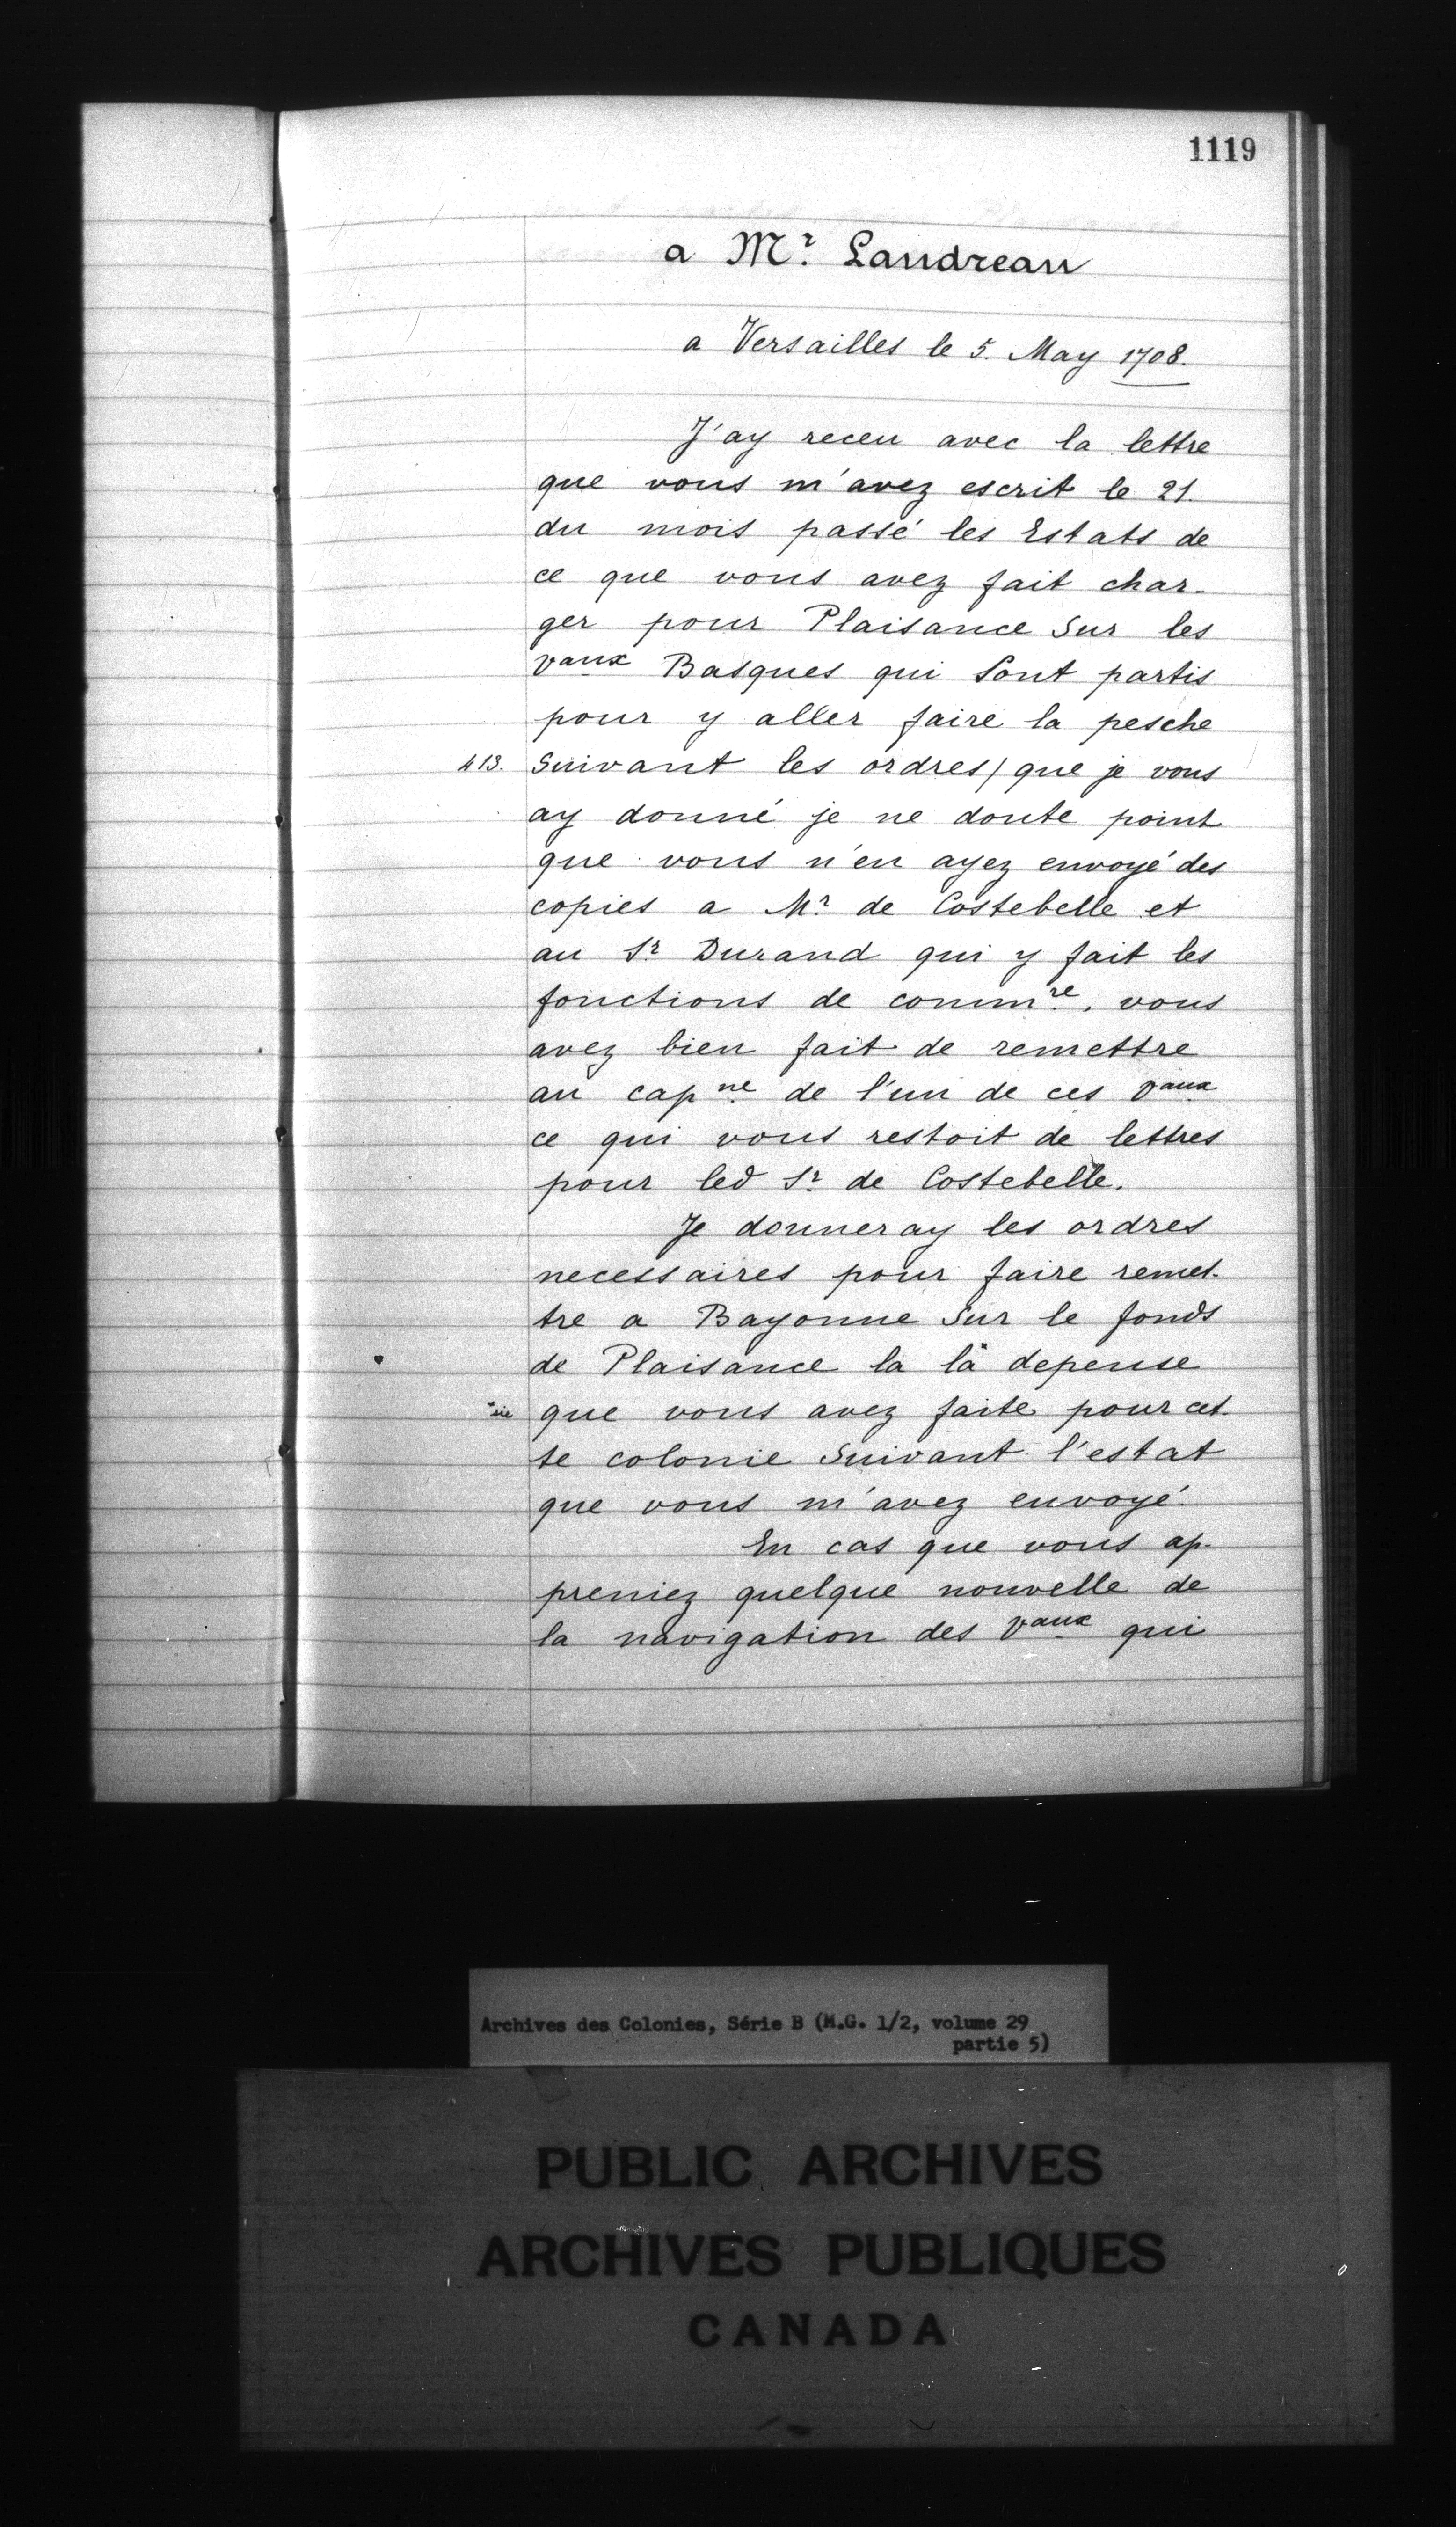 1119
a Mr. Landreau
a Versailles le 5. May 1708.
J'ay receu avec la lettre
que vous m'avez escrit le 21.
du mois passé les Estats de
ce que vous avez fait char-
ger pour Plaisance Sur les
Vaux Basques qui Sont partis
pour y aller faire la pesche
413. Suivant les ordres/ que je vous
ay donné je ne doute point
que vous n'en ayez envoyé des
copies a Mr. de Costebelle et
au Sr. Durand qui y fait les
fonctions de commre. vous
avez bien fait de remettre
au capne de l'un de ces Vaux
ce qui vous restoit de lettres
pour led Sr. de Costebelle.
Je donneray les ordres
necessaires pour faire remet-
tre a Bayonne Sur le fonds
de Plaisance la la* depense
*sic que vous avez faite pour cet-
te colonie Suivant l'estat
que vous m'avez envoyé.
En cas que vous ap-
preniez quelque nouvelle de
la navigation des Vaux qui
Archives des Colonies, Série B (M.G. 1/2, volume 29
partie 5)
PUBLIC ARCHIVES
ARCHIVES PUBLIQUES
CANADA